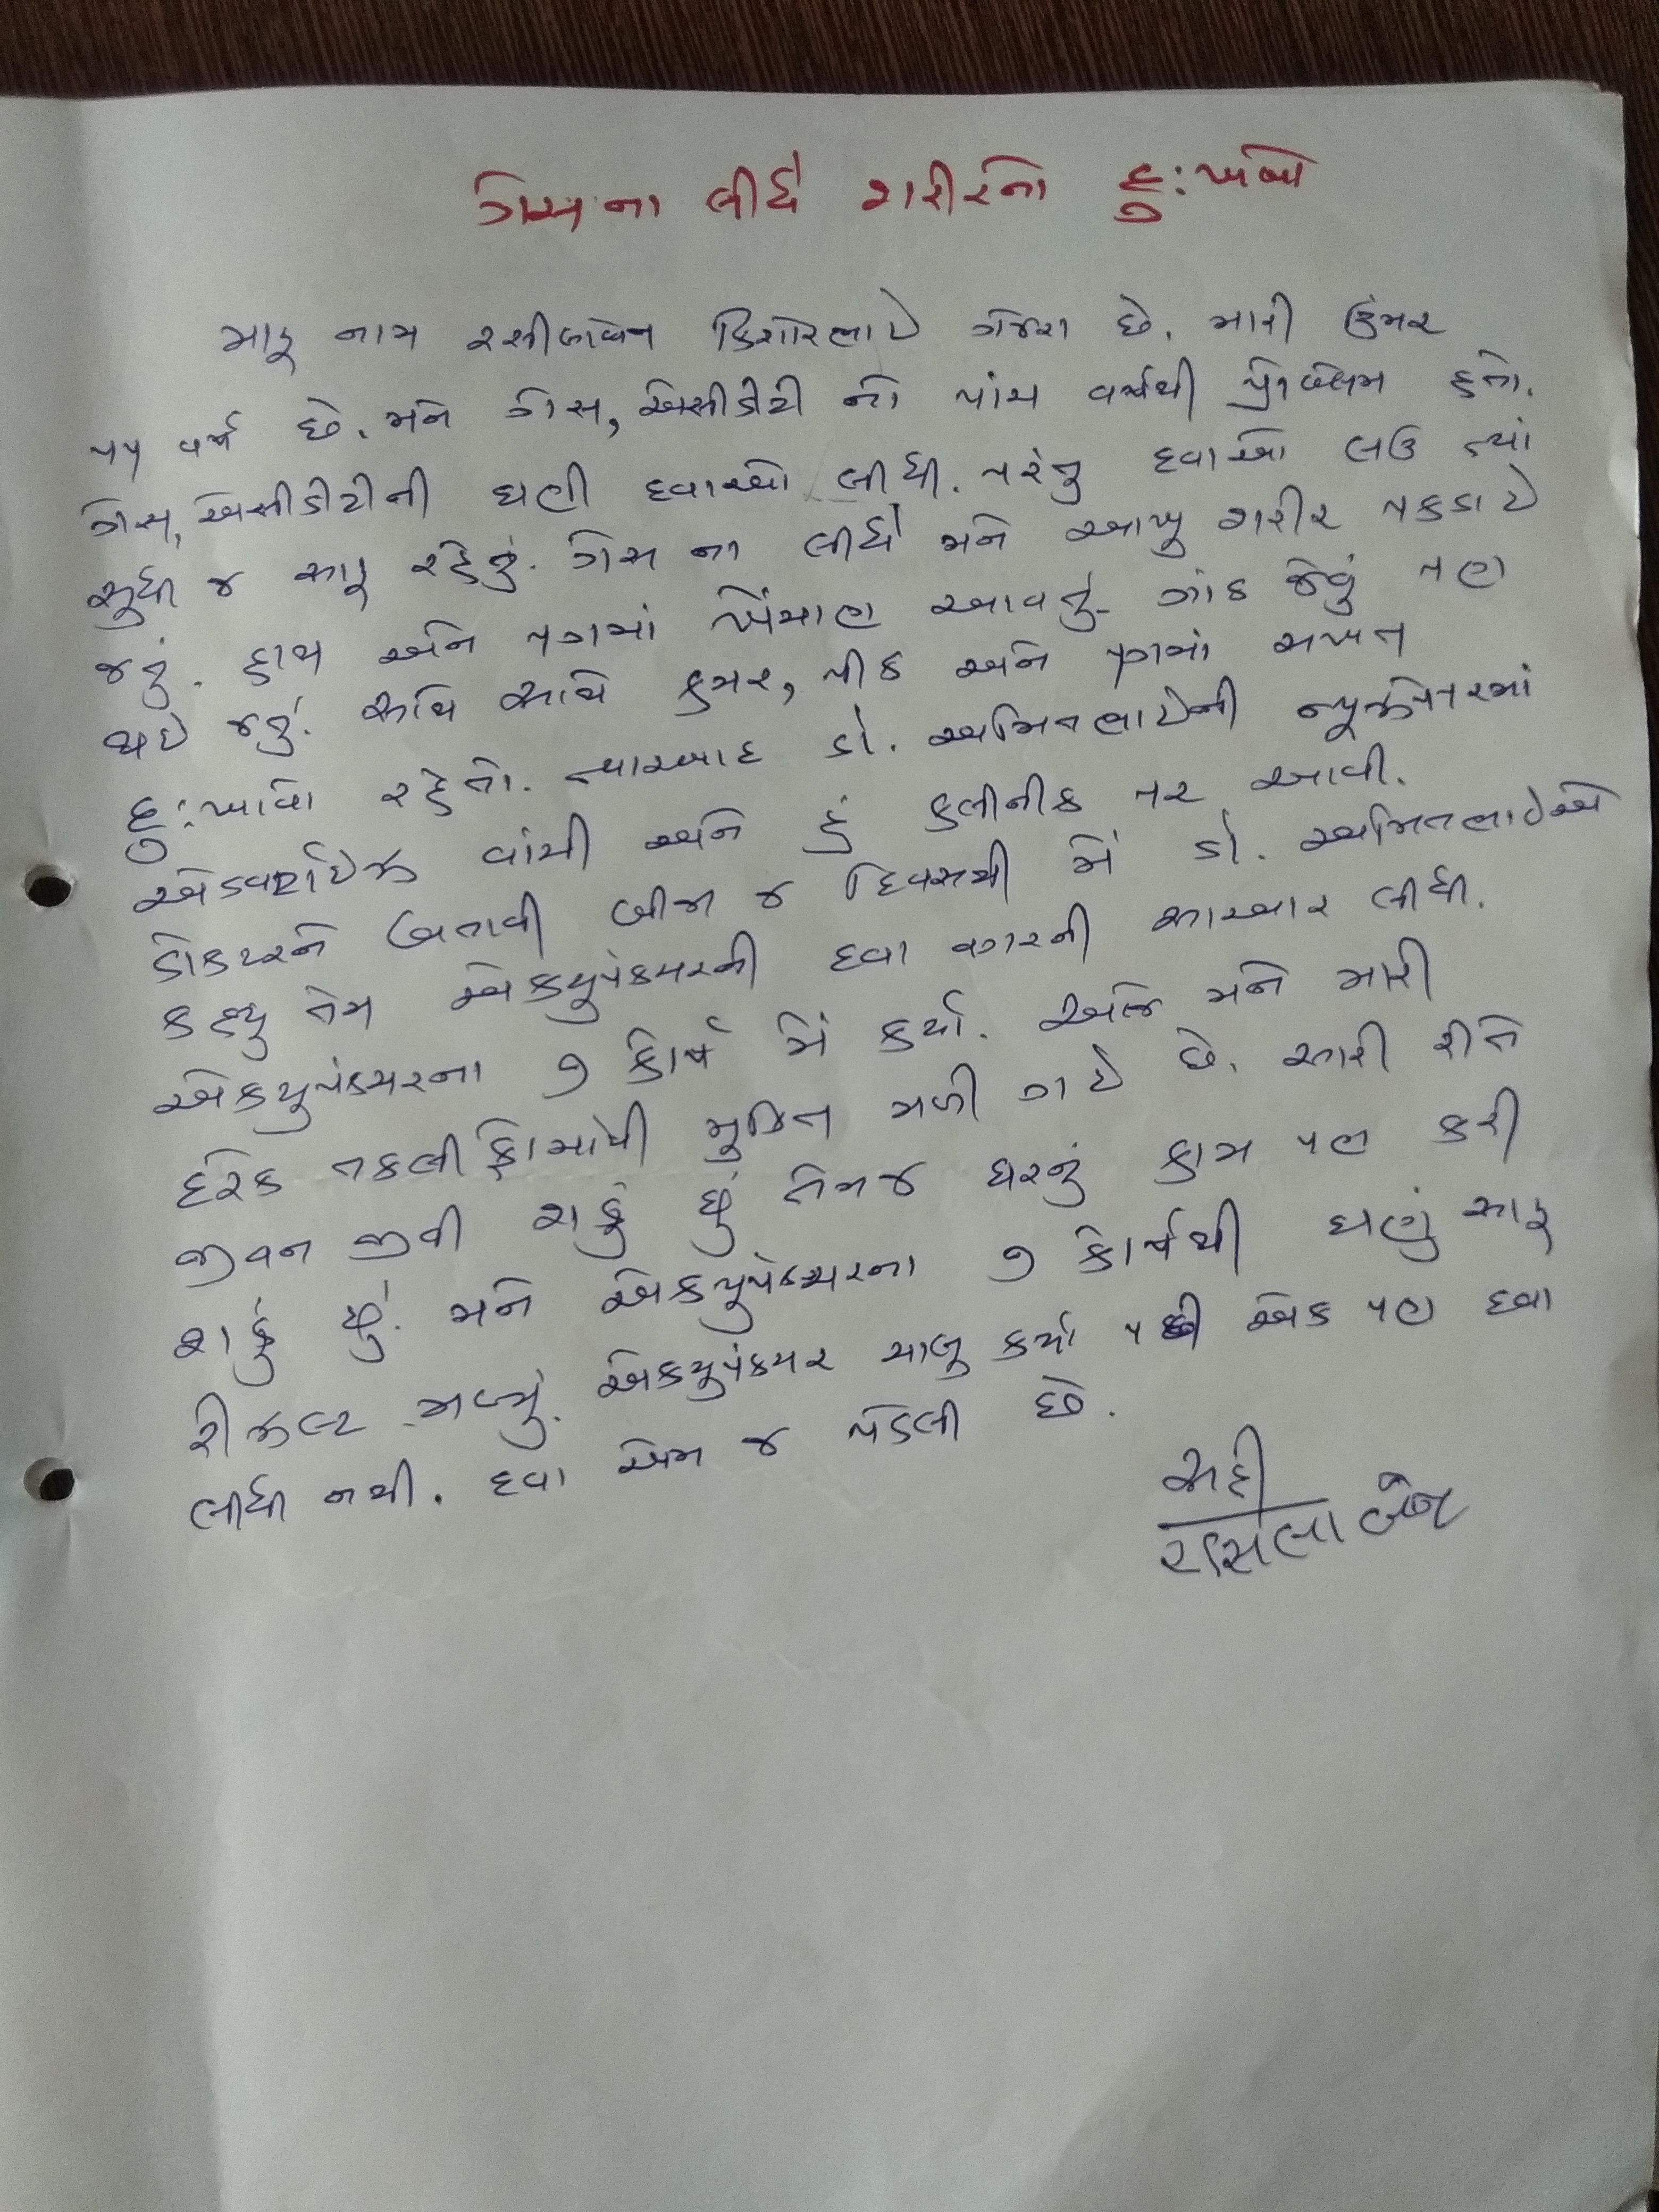 ગેસના લીધે શરીરનો દુ:ખાવો
મારૂ નામ રસીલાબેન કિશોરભાઈ ગજેરા છે. મારી ઉંમર
૫૫ વર્ષ છે. મને ગેસ, એસીડીટી નો પાંચ વર્ષથી પ્રોબ્લેમ હતો.
ગેસ, એસીડીટીની ઘણી દવાઓ લીધી. પરંતુ દવાઓ લઉ ત્યાં
સુધી જ સારૂ રહેતું. ગેસ ના લીધે મને આખુ શરીર પકડાઈ
જતું. હાથ અને પગમાં ખેંચાણ આવતું. ગાંઠ જેવું પણ
થઈ જતું. સાથે સાથે કમર, પીઠ અને પગમાં સખત
દુ:ખાવો રહેતો. ત્યારબાદ ડો. અમિતભાઈની ન્યૂઝપેપરમાં
એડવર્ટાઈઝ વાંચી અને હું કલીનીક પર આવી.
ડોકટરને બતાવી બીજા જ દિવસથી મેં ડો. અમિતભાઈએ
કહ્યુ તેમ એક્યુપંકચરની દવા વગરની સારવાર લીધી.
એક્યુપંકચરના ૭ કોર્ષ મેં કર્યા. આજે મને મારી
દરેક તકલીફોમાંથી મુક્તિ મળી ગઈ છે. સારી રીતે
જીવન જીવી શકું છું તેમજ ઘરનું કામ પણ કરી
શકું છું. મને એક્યુપંકચરના ૭ કોર્ષથી ઘણું સારૂ
રીઝલ્ટ મળ્યું. એક્યુપંકચર ચાલુ કર્યા પછી એક પણ દવા
લીધી નથી. દવા એમ જ પડેલી છે.
સહી
રસિલા બેન